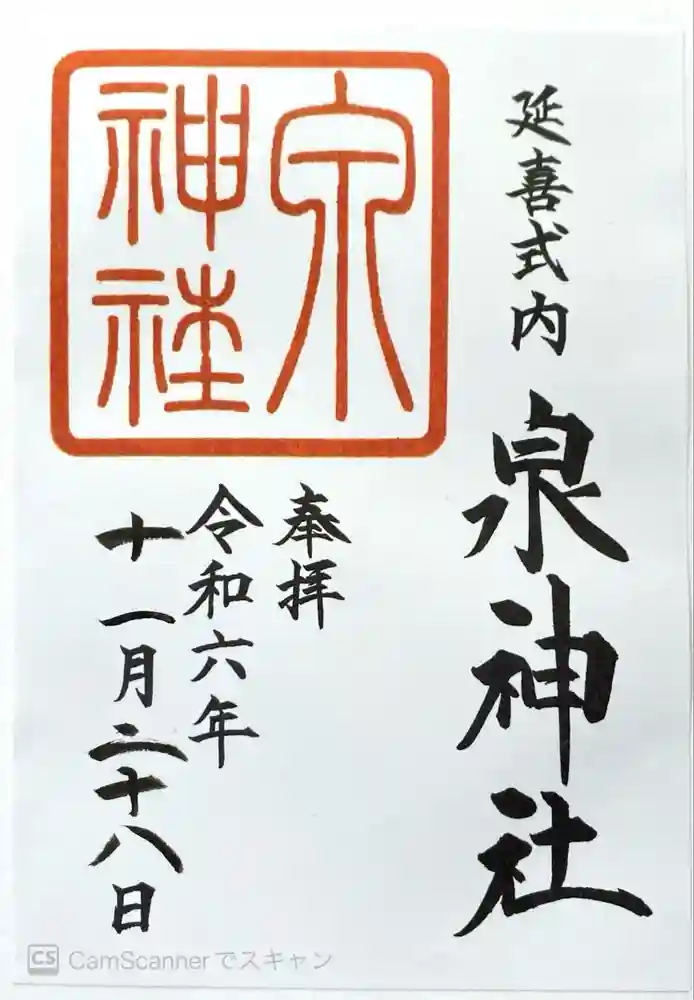 延喜式内
泉神社
泉
神社
奉拝
令和六年
十一月二十八日
CS CamScannerでスキャン